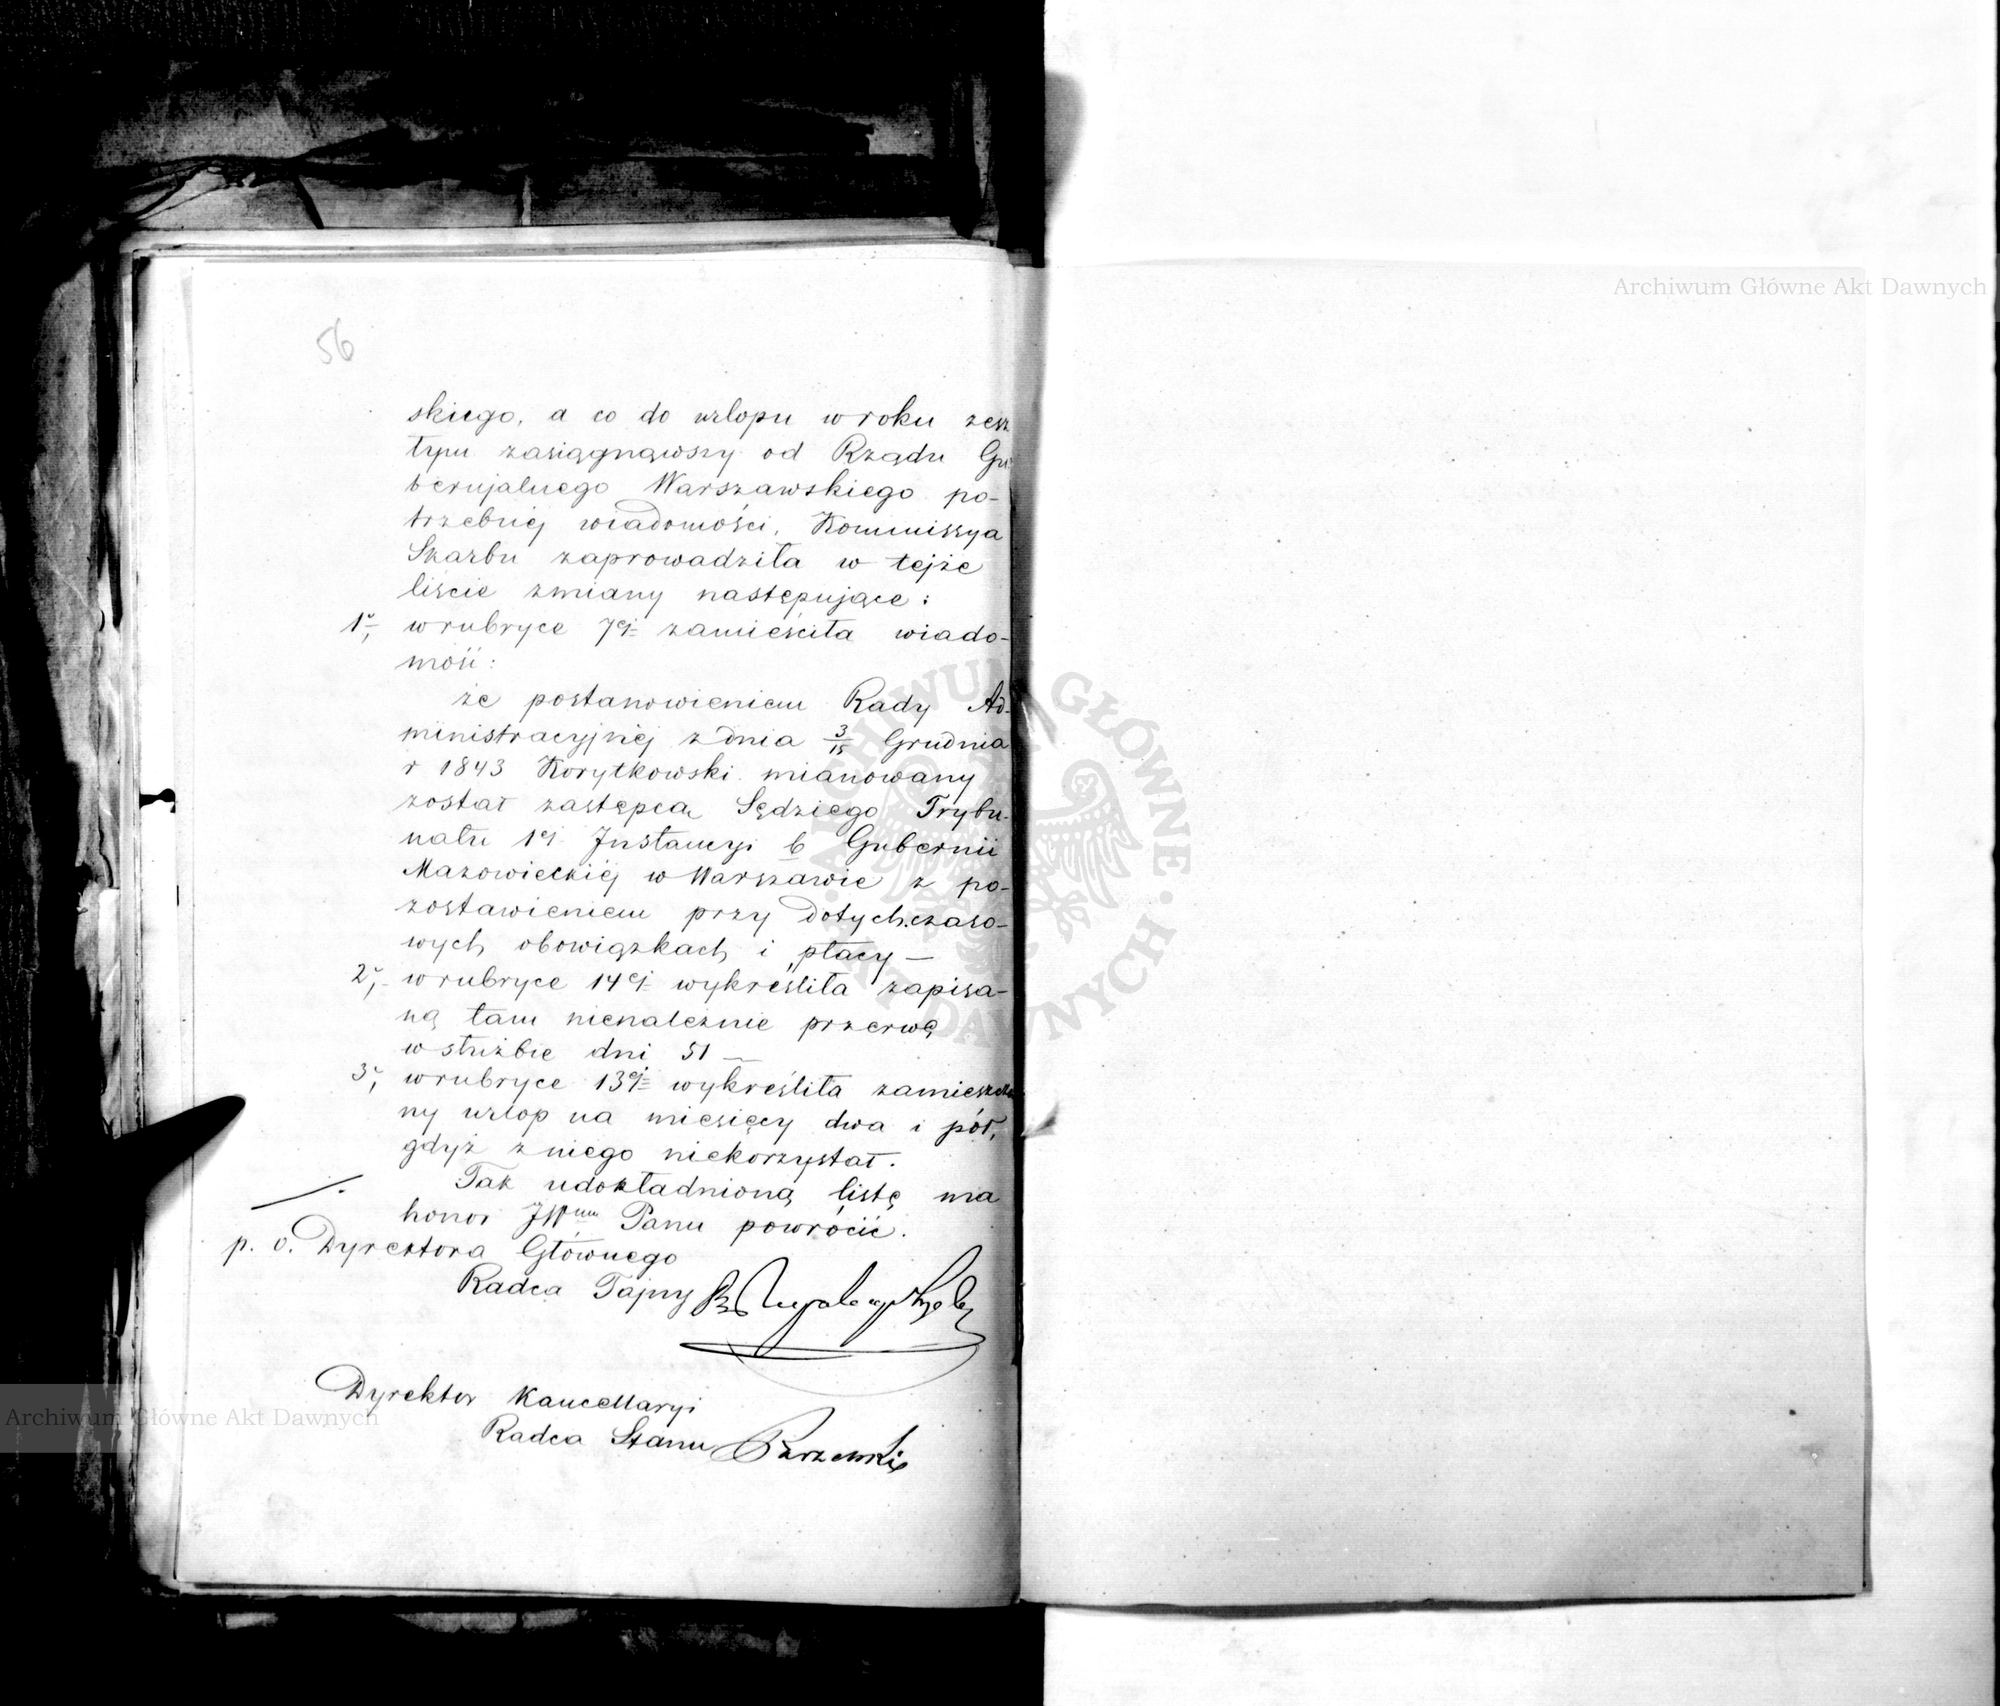 56
skiego, a co do urlopu w roku zesz
łym zasiągnąwszy od Rządu Gu
bernjalnego Warszawskiego po-
trzebnéj wiadomości, Kommissya
Skarbu zaprowadziła w tejże
liście zmiany następujące:
1°, w rubryce 7éj zamieściła wiado-
mość:
że postanowieniem Rady Ad-
ministracyjnéj z dnia 3/15 Grudnia
r 1843 Korytkowski mianowany
został zastępcą Sędziego Trybu-
nału 1éj Instancyi b Gubernii
Mazowieckiéj w Warszawie z po-
zostawieniem przy dotychczaso-
wych obowiązkach i płacy —
2°, w rubryce 14éj wykreśliła zapisa-
ną tam nienależnie przerwę
w służbie dni 51 —
3°, w rubryce 13éj wykreśliła zamieszczo
ny urlop na miesięcy dwa i pół,
gdyż z niego niekorzystał.
Tak udokładnioną listę ma
honor JWmu Panu powrócić.
p. o. Dyrektora Głównego
Radca Tajny
Dyrektor Kancellaryi
Radca Stanu
Archiwum Główne Akt Dawnych
Archiwum Główne Akt Dawnych
ARCHIWUM GŁÓWNE AKT DAWNYCH